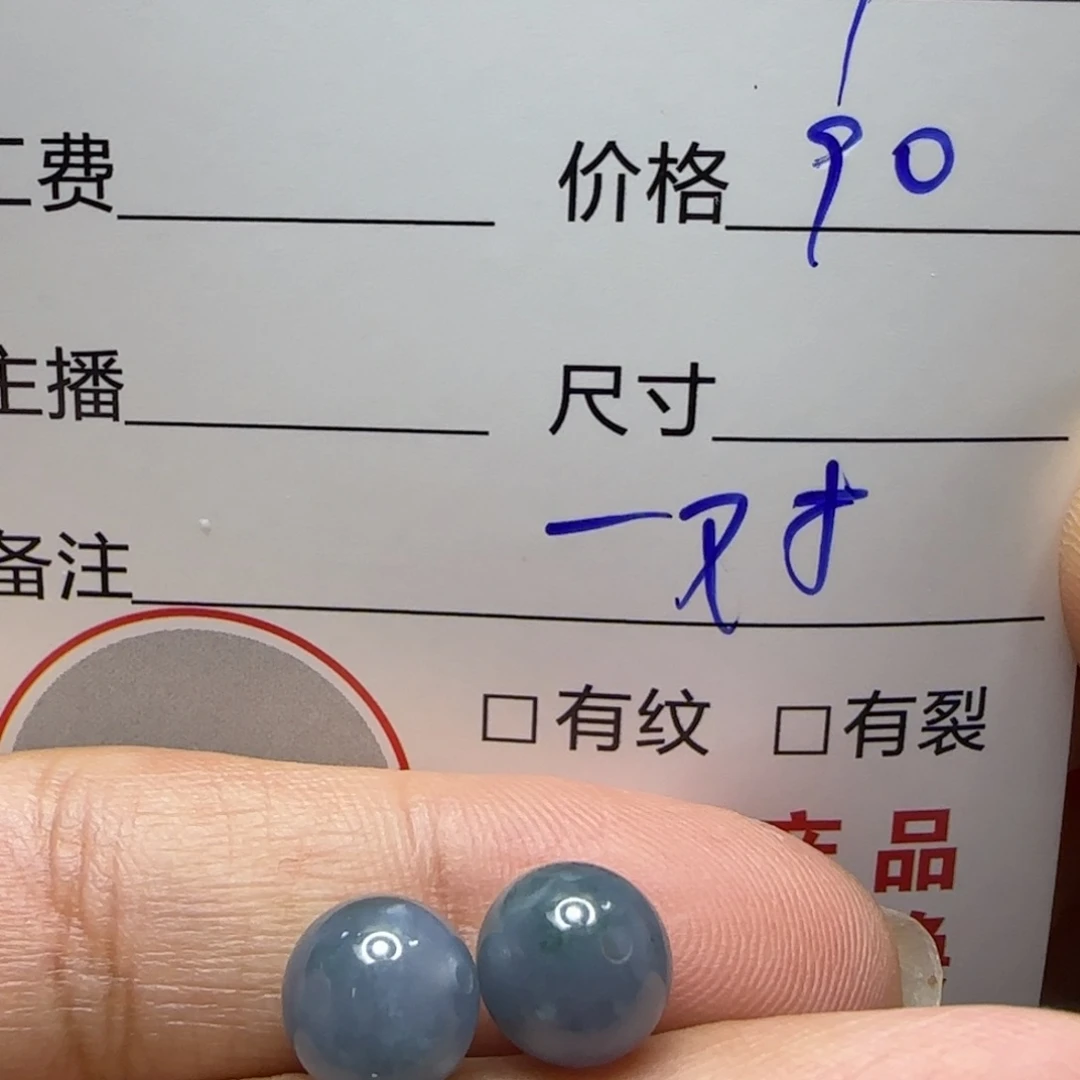 工费 价格 90
主播 尺寸
备注 一对
□有纹 □有裂
产品